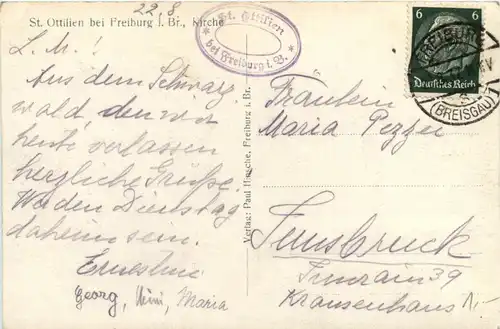 22,8
St. Ottilien bei Freiburg i. Br., Kirche
St. Ottilien
bei Freiburg i. B.
6 6
Deutsches Reich
(BREISGAU)
L. M.!
Aus dem Schwarz
wald, den wir
heute verlassen
herzliche Grüße.
Werden Dienstag
daheim sein.
Ernestine
Georg, Mimi, Maria
Verlag: Paul Hirsche, Freiburg i. Br.
Fräulein
Maria Pezzei
Innsbruck
Innrain 39
Krankenhaus